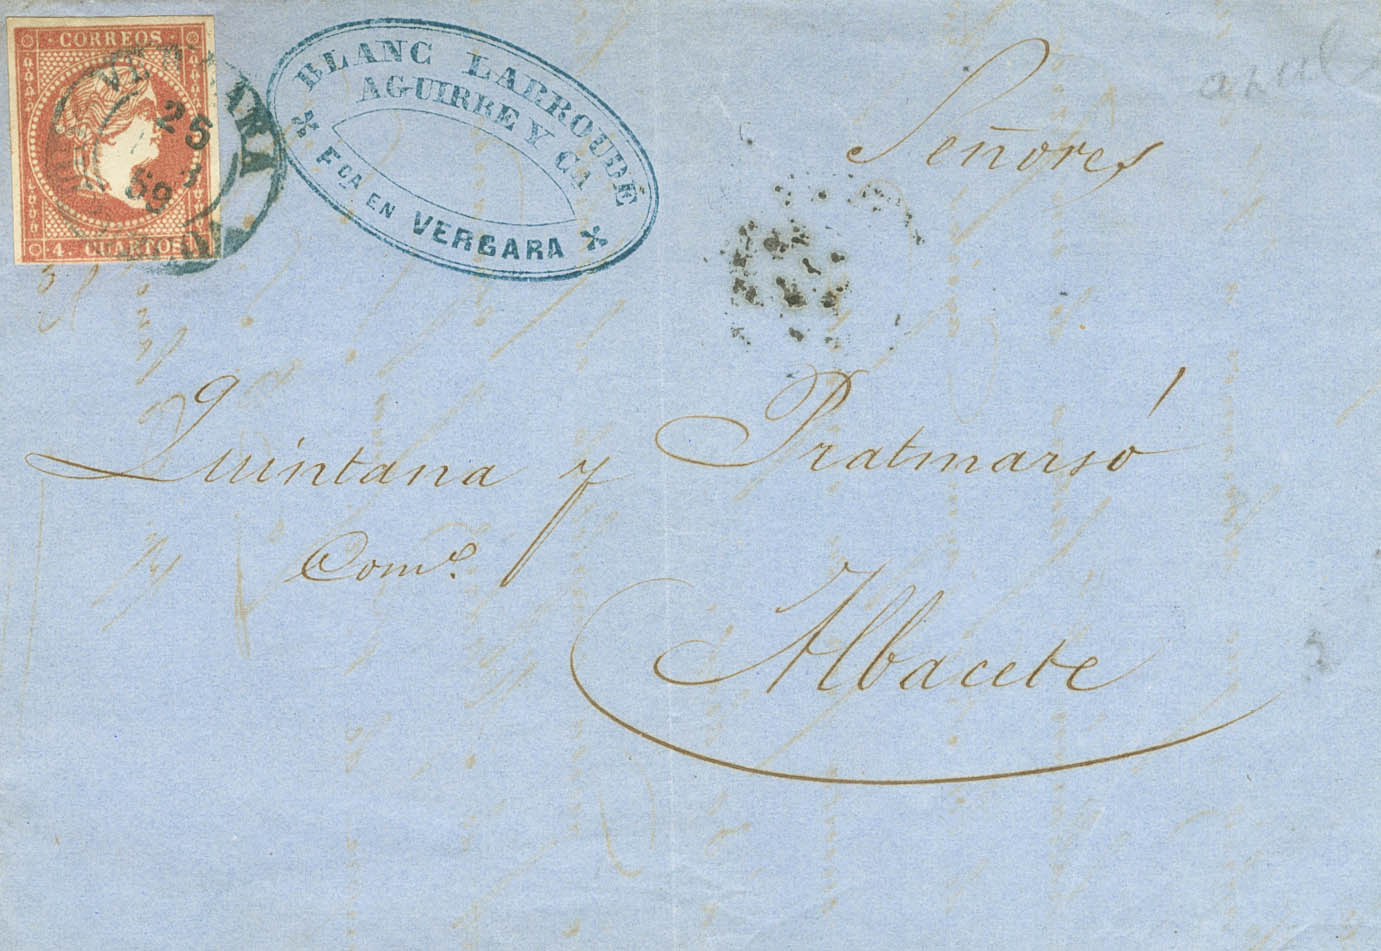 CORREOS
4. CUARTOS
VERGARA
25
BLANC LABROUDE
AGUIRRE Y CA
FCA EN VERGARA
azul
Señores
Quintana y Pratmarsó
Comª.
Albacete